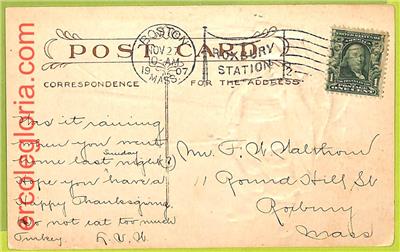 POST CARD
BOSTON
NOV 27
10-AM
1907
MASS.
ROXBURY
STATION
CORRESPONDENCE
FOR THE ADDRESS
Was it raining
when you went
home last night?
Sunday
Hope you have a
Happy Thanksgiving.
Do not eat too much
Turkey. L.V.W.
Mr. F. W.
11 Round Hill St
Roxbury
Mass
ercolegloria.com